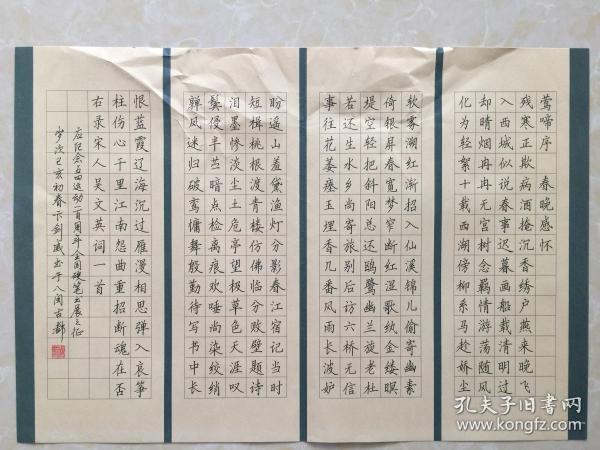 莺啼序 春晚感怀
残寒正欺病酒掩沉香绣户燕来晚飞
入西城似说春事迟暮画船载清明过
却晴烟冉冉无宫树念羁情游荡随风
化为轻絮十载西湖傍柳系马趁娇尘
软雾溯红渐招入仙溪锦儿偷寄幽素
倚银屏春宽梦窄断红湿歌纨金缕暝
堤空轻把斜阳总还鸥鹭幽兰旋老杜
若还生水乡尚寄旅别后访六桥无信
事往花萎瘗玉埋香几番风雨长波妒
盼遥山羞黛渔灯分影春江宿记当时
短楫桃根渡青楼仿佛临分败壁题诗
泪墨惨淡尘土危亭望极草色天涯叹
鬓侵半苎暗点检离痕欢唾尚染鲛绡
亸凤迷归破鸾慵舞殷勤待写书中长
恨蓝霞辽海沉过雁漫相思弹入哀筝
柱伤心千里江南怨曲重招断魂在否
右录宋人吴文英词一首
应纪念五四运动一百周年全国硬笔书展之征
岁次己亥初春卞剑威书于八闽古都
孔夫子旧书网
www.kongfz.com